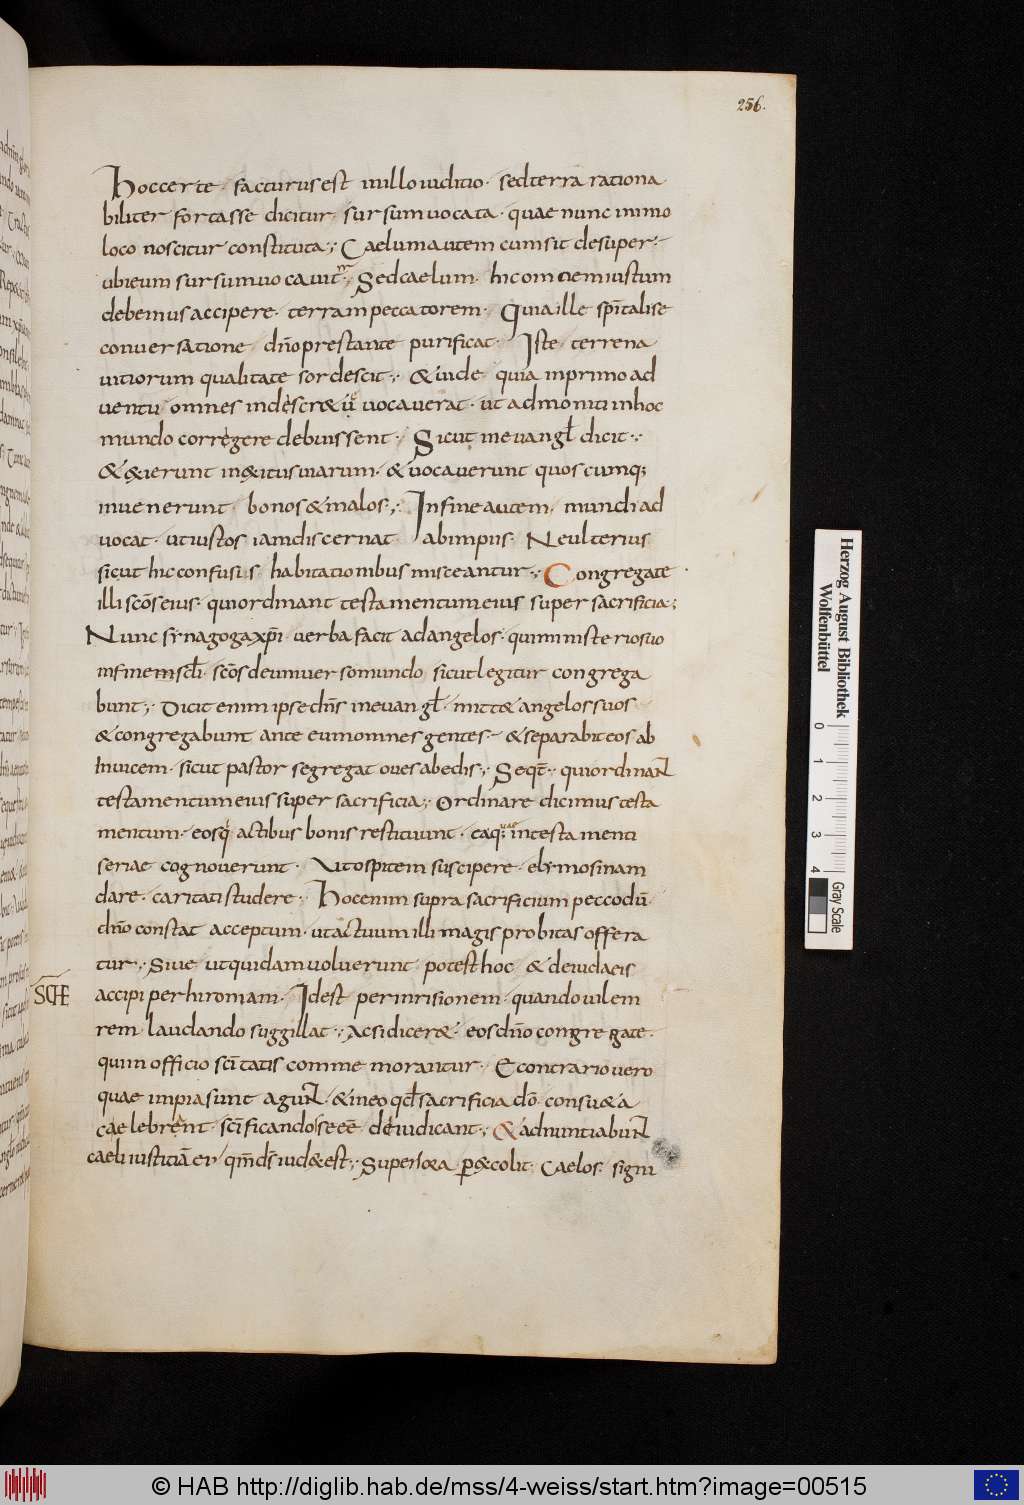 256.
Hoc certe facturus est in illo iuditio· sed terra rationa
biliter fortasse dicitur sursum uocata· quae nunc in imo
loco noscitur constituta·; Caelum autem cum sit desuper·
ubi eum sursum uocauit·; Sed caelum· hic omnem iustum
debemus accipere· terram peccatorem· Quia ille spitalise
conuersatione dno prestante purificat· Iste terrena
uitiorum qualitate sordescit·; & inde· quia in primo ad
uentu omnes indescr&
uocauerat· ut admoniti in hoc
mundo corregere debuissent· Sicut in euangl dicit·;
& exierunt in exitus uiarum· & uocauerunt quoscumq;
inuenerunt· bonos & malos·; In fine autem· mundi ad
uocat· ut iustos iam discernat ab impiis· Ne ulterius
sicut hic confusis habitationibus misceantur·; Congregate
illi scos eius· qui ordinant testamentum eius super sacrificia·;
Nunc synagoga xpi· uerba facit ad angelos· qui ministerio suo
in finem scli· scos de uniuerso mundo sicut legitur congrega
bunt·; Dicit enim ipse dns in euangl· mitt& angelos suos
& congregabunt ante eum omnes gentes & separabit eos ab
inuicem· sicut pastor segregat oues ab edis·; Seqt·; qui ordinant
testamentum eius super sacrificia·; Ordinare dicimus testa
mentum· eos q actibus bonis restituunt· eaq; quae in testamenti
seriae cognouerunt· Ut ospitem suscipere· elymosinam
dare· caritati studere· Hoc enim supra sacrificium peccodu·
dno constat acceptum· ut actuum illi magis probitas offera
tur·; Siue ut quidam uoluerunt potest hoc & de iudaeis
SCHE
accipi per hironiam· Idest per inrisionem· quando uilem
rem laudando suggillat·; Ac si dicer&· eos dno congregate·
qui in officio scitatis commemorantur· E contrario uero
quae impia sunt agunt· & in eo qd sacrificia do consu&a
caelebrant scificando se ee deiudicant·; & adnuntiabunt
caeli iustitia ei qm ds iudex est·; Superiora p&colit· Caelos· signi
Herzog August Bibliothek
Wolfenbüttel
0 1 2 3 4
Gray Scale
© HAB http://diglib.hab.de/mss/4-weiss/start.htm?image=00515